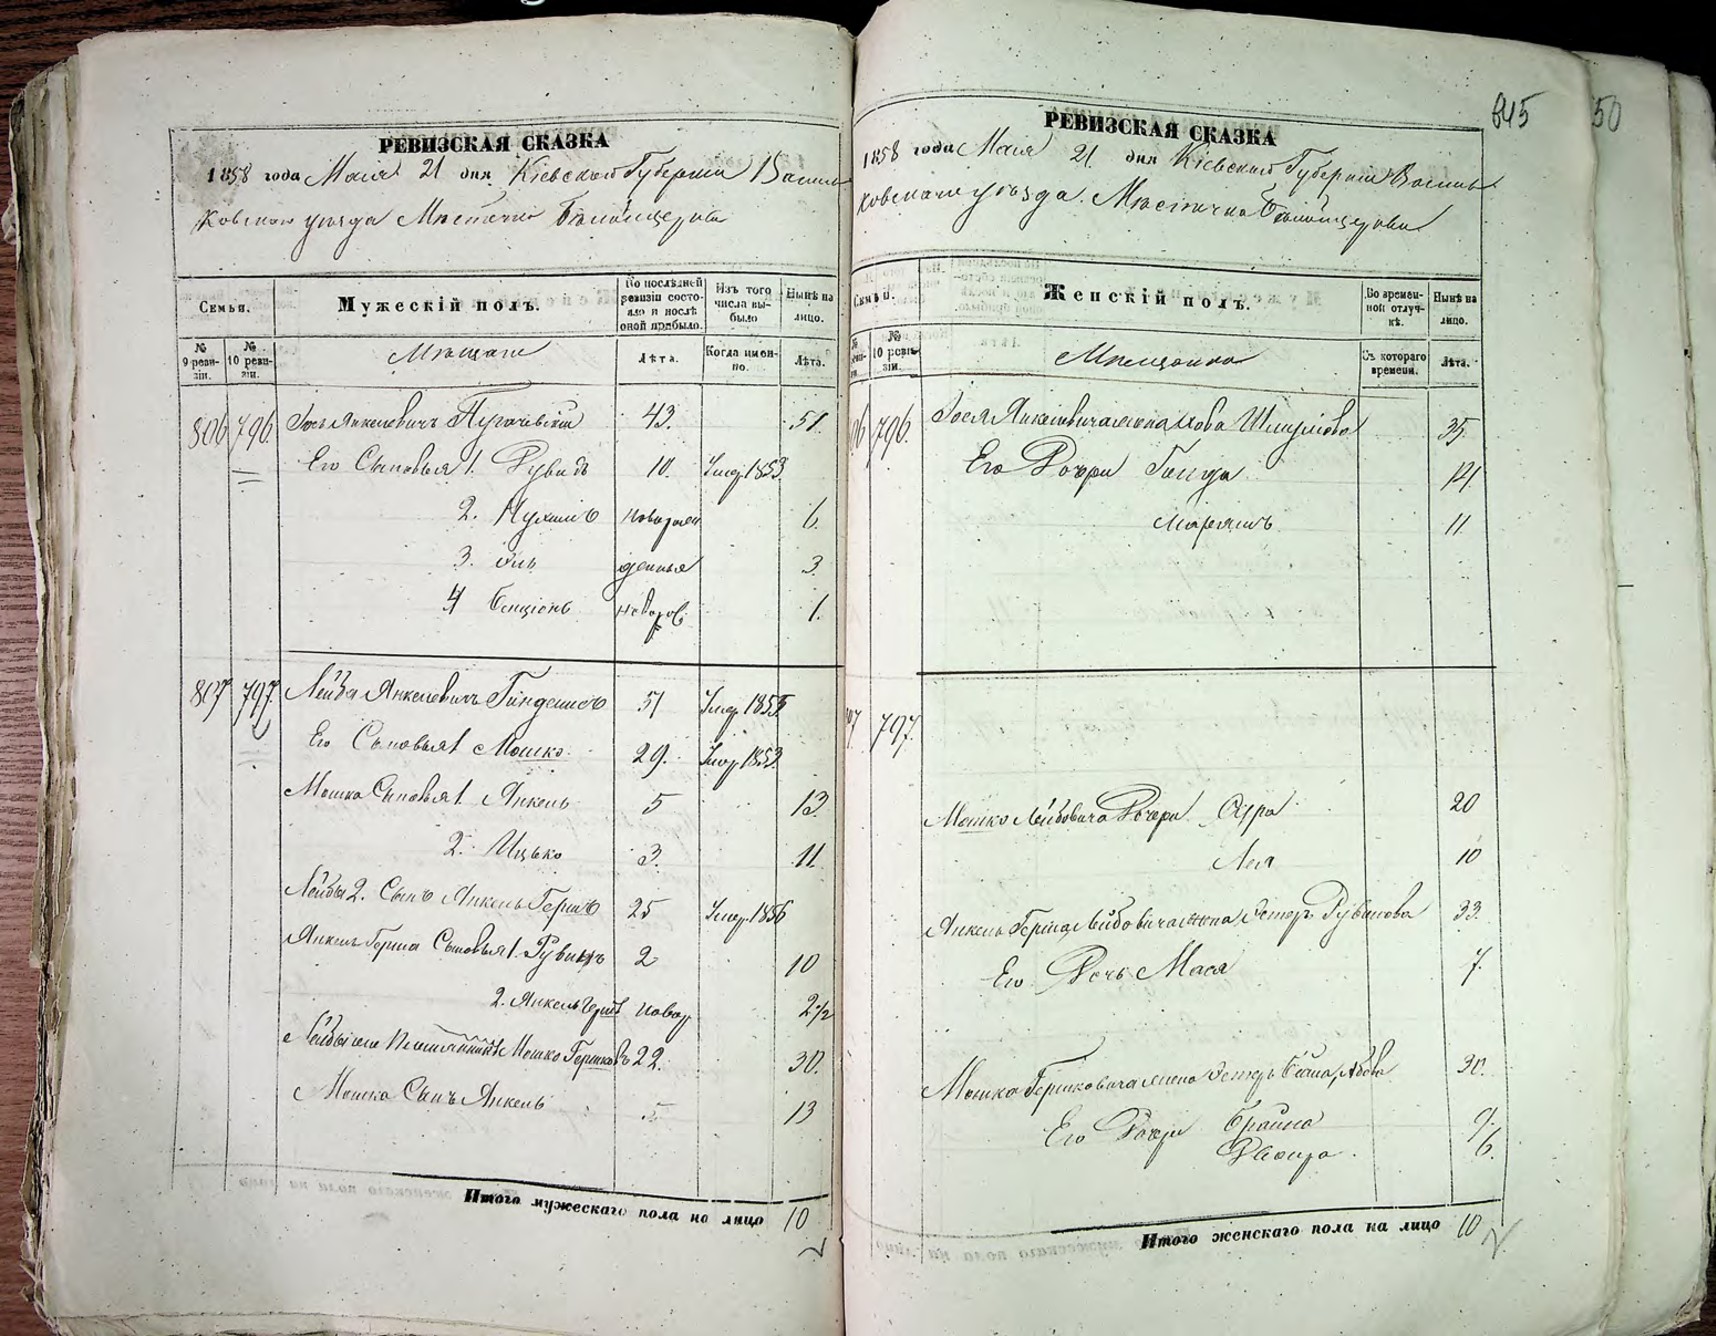 РЕВИЗСКАЯ СКАЗКА
1858 года Маія 21 дня Кіевской Губерніи Василь
ковскаго уѣзда Мѣстечка Бѣлойцеркви
Семьи.
Мужескій полъ.
По послѣдней ревизіи состояло и послѣ оной прибыло.
Изъ того числа выбыло.
Нынѣ на лицо.
№ 9 ревизіи.
№ 10 ревизіи.
Мѣщане
Лѣта.
Когда именно.
Лѣта.
806 796. Янкелевичъ Пугачевскій 43. 51.
Его Сыновья 1. Рувинъ 10. Умер. 1853
2. Нухимъ новорож 6.
3. денныя 3.
4 Бенціонъ новорож 1.
807 797. Лейба Янкелевичъ 51 Умер. 1855
Его Сыновья 1 Мошко 29. Умер. 1853.
Мошка Сыновья 1. Янкель 5 13.
2. Ицько 3. 11.
Лейбы 2. Сынъ Янкель Гершъ 25 Умер. 1856
Янкель Герша Сыновья 1. Рувинъ 2 10
2. Янкель Гершъ новор 2 1/2
Лейбы Племянникъ Мошко Гершковъ 22. 30.
Мошка Сынъ Янкель 5 13
Итого мужескаго пола на лицо 10
845 50
РЕВИЗСКАЯ СКАЗКА
1858 года Маія 21 дня Кіевской Губерніи Василь
ковскаго уѣзда Мѣстечка Бѣлойцеркви
Семьи.
Женскій полъ.
Во временной отлучкѣ.
Нынѣ на лицо.
№ 10 ревизіи.
Мѣщанки
Съ котораго времени.
Лѣта.
796. Янкелевича жена Хова Шмулiова 35
Его Дочери 14
Маріямъ 11
797.
Мошко Лейбовича Дочери Сура 20
Лея 10
Янкель Герша Лейбовича жена Эстеръ Рубинова 33.
Его Дочь Мася 7.
Мошка Гершковича жена Эстеръ 30.
Его Дочери Брайна 9.
Двойра 6.
Итого женскаго пола на лицо 10